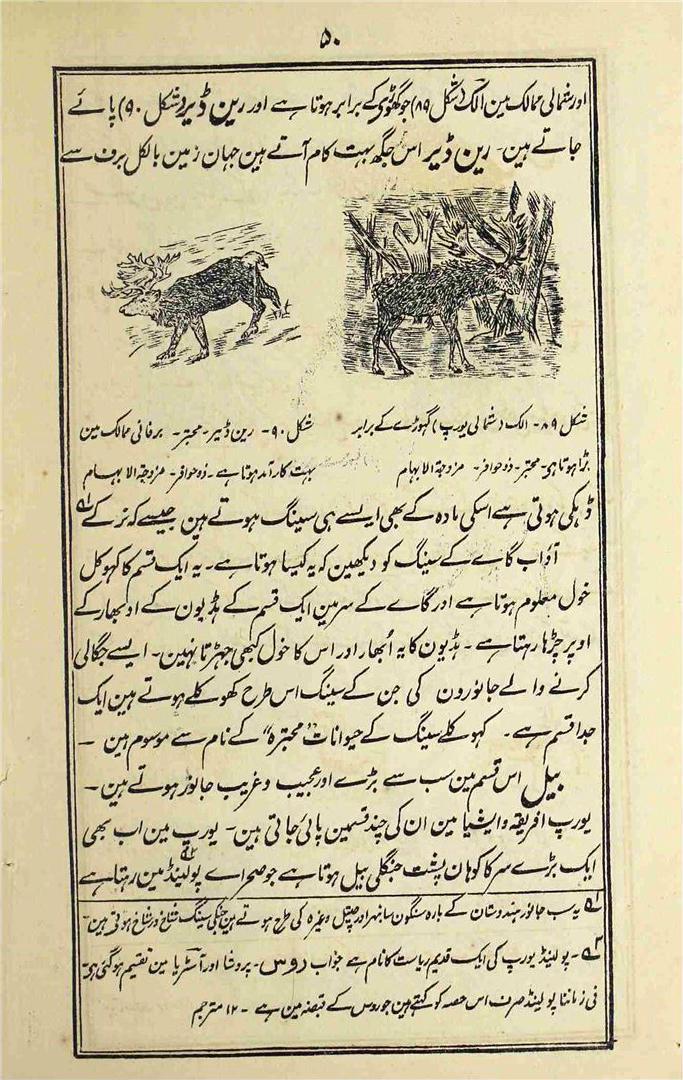 ۵۰
اور شمالی ممالک مین الک (شکل ۸۹) جو گھوڑی کے برابر ہوتا ہے اور رین ڈیر (شکل ۹۰) پائے
جاتے ہین۔ رین ڈیر اس جگھ بہت کام آتے ہین جہان زمین بالکل برف سے
شکل ۸۹۔ الک (شمالی یورپ) گہوڑے کے برابر
بڑا ہوتا ہی۔ مجتر۔ ذوحوافر۔ مزوجۃ الابہام
شکل ۹۰۔ رین ڈیر۔ مجتر۔ برفانی ممالک مین
بہت کار آمد ہوتا ہے۔ ذوحوافر۔ مزوجۃ الابہام
ڈہکی ہوتی ہے اسکی مادہ کے بھی ایسے ہی سینگ ہوتے ہین جیسے کہ نر کے ۱؎
آؤ اب گاے کے سینگ کو دیکھین کہ یہ کیسا ہوتا ہے۔ یہ ایک قسم کا کہوکل
خول معلوم ہوتا ہے اور گاے کے سر مین ایک قسم کے ہڈیون کے اوبھار کے
اوپر چڑہا رہتا ہے۔ ہڈیون کا یہ اُبھار اور اس کا خول کبھی جہڑتا نہین۔ ایسے جگالی
کرنے والے جانورون کی جن کے سینگ اس طرح کھوکلے ہوتے ہین ایک
جدا قسم ہے۔ کہوکلے سینگ کے حیوانات "مجترہ" کے نام سے موسوم ہین۔
بیل اس قسم مین سب سے بڑے اور عجیب وغریب جانور ہوتے ہین۔
یورپ افریقہ وایشیا مین ان کی چند قسمین پائی جاتی ہین۔ یورپ مین اب بھی
ایک بڑے سر کا کوہان پشت جنگلی بیل ہوتا ہے جو صحراے پولینڈ ۲؎ مین رہتا ہے
۱؎ یہ سب جانور ہندوستان کے بارہ سنگون سانبہر اور چیتل وغیرہ کی طرح ہوتے ہین جنکی سینگ شاخ در شاخ ہوتی ہین۔
۲؎۔ پولینڈ یورپ کی ایک قدیم ریاست کا نام ہے جو اب روس۔ پروشا اور آسٹریا مین تقسیم ہو گئی ہی
فی زماننا پولینڈ صرف اس حصہ کو کہتے ہین جو روس کے قبضہ مین ہے۔ ۱۲ مترجم